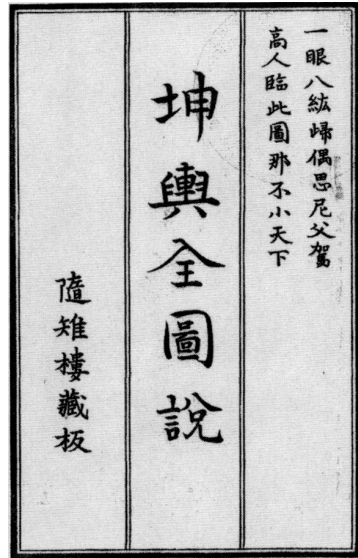 一眼八紘歸偶思尼父駕
高人臨此圖那不小天下
坤輿全圖說
隨雉樓藏板